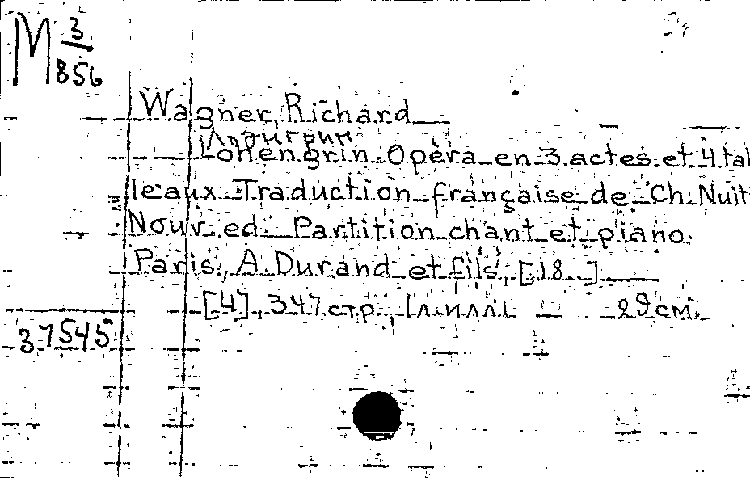 M 3
856
Wagner, Richard
Лоэнгрин
Lohengrin. Opéra en 3 actes et 4 tab
leaux. Traduction française de Ch. Nuit
Nouv. ed. Partition chant et piano.
Paris, A. Durand et fils, [18..]
[4], 347 стр., 1 л. илл. 29 см.
37545